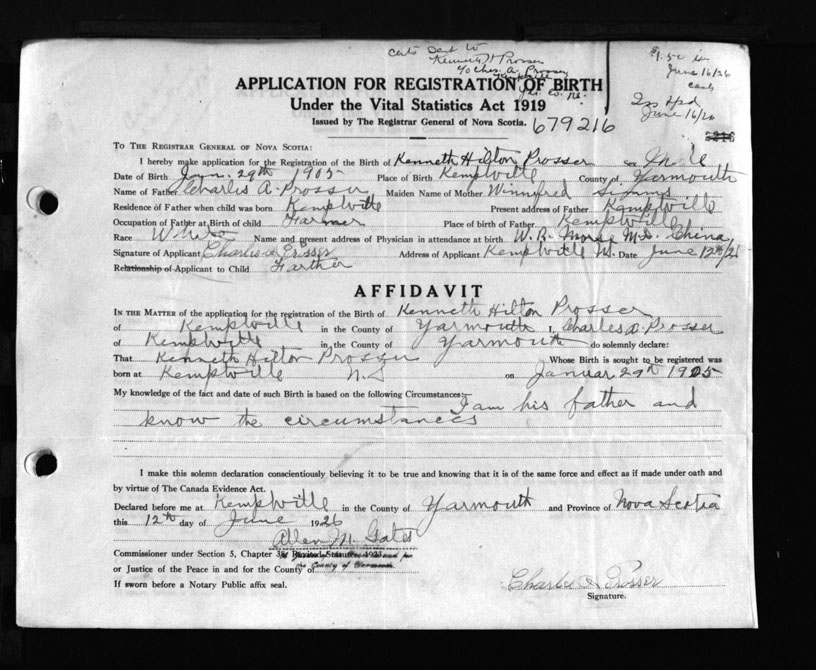 Certs Sent to
Kenneth H Prosser
c/o Chas. A. Prosser
Kemptville
$1.50 in
June 16/26
cash
June 16/26
APPLICATION FOR REGISTRATION OF BIRTH
Under the Vital Statistics Act 1919
Issued by The Registrar General of Nova Scotia.
679216
To The Registrar General of Nova Scotia:
I hereby make application for the Registration of the Birth of Kenneth Hilton Prosser sex Male
Date of Birth Jan. 29th 1905 Place of Birth Kemptville County of Yarmouth
Name of Father Charles A. Prosser Maiden Name of Mother Winnifred Simms
Residence of Father when child was born Kemptville Present address of Father Kemptville
Occupation of Father at Birth of child Farmer Place of birth of Father Kemptville
Race White Name and present address of Physician in attendance at birth W. R. Morse M.D. China
Signature of Applicant Charlie A Prosser Address of Applicant Kemptville N. Date June 12th/26
Relationship of Applicant to Child Farther
AFFIDAVIT
In the Matter of the application for the registration of Birth of Kenneth Hilton Prosser
of Kemptville in the County of Yarmouth I, Charles A. Prosser
of Kemptville in the County of Yarmouth do solemnly declare:
That Kenneth Hilton Prosser Whose Birth is sought to be registered was
born at Kemptville N.S on Januar 29th 1905
My knowledge of the fact and date of such Birth is based on the following Circumstances:- I am his father and
know the circumstances
I make this solemn declaration conscientiously believing it to be true and knowing that it is of the same force and effect as if made under oath and
by virtue of The Canada Evidence Act.
Declared before me at Kemptville in the County of Yarmouth and Province of Nova Scotia
this 12th day of June 1926
Allen M. Gates
Commissioner under Section 5, Chapter 38 Revised Statutes 1923
or Justice of the Peace in and for the County of the County of Yarmouth
If sworn before a Notary Public affix seal.
Charlie A Prosser
Signature.